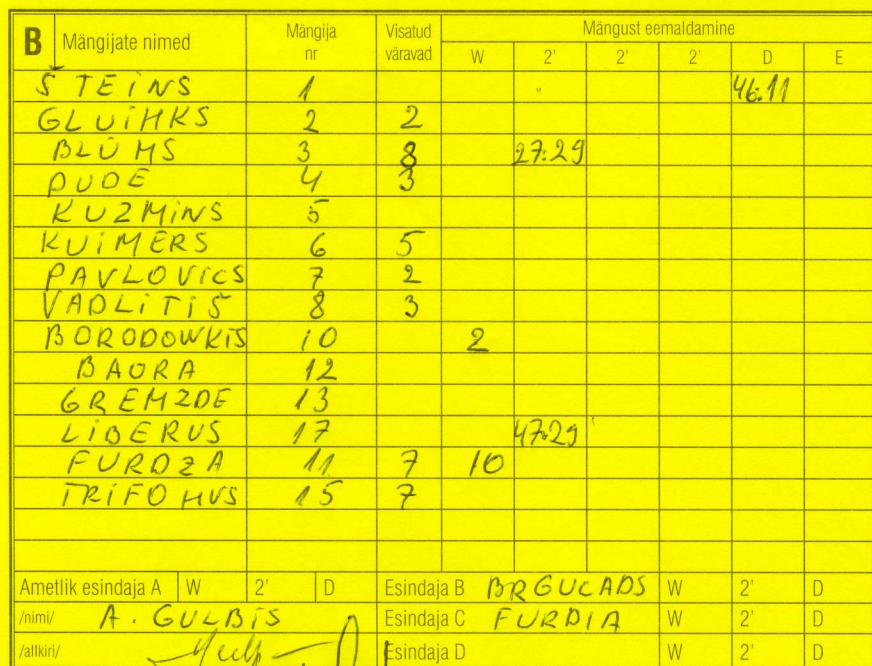 B Mängijate nimed Mängija nr Visatud väravad Mängust eemaldamine
W 2' 2' 2' D E
ŠTEINS 1 46.11
GLUIHKS 2 2
BLŪMS 3 8 27:29
DUDE 4 3
KUZMINS 5
KUIMERS 6 5
PAVLOVICS 7 2
VADLITIS 8 3
BORODOWKIS 10 2
BAURA 12
GREMZDE 13
LIBERUS 17 47.29
FURDZA 11 7 10
TRIFOHVS 15 7
Ametlik esindaja A W 2' D Esindaja B BRGULADS W 2' D
/nimi/ A. GULBIS Esindaja C FURDIA W 2' D
/allkiri/ Esindaja D W 2' D